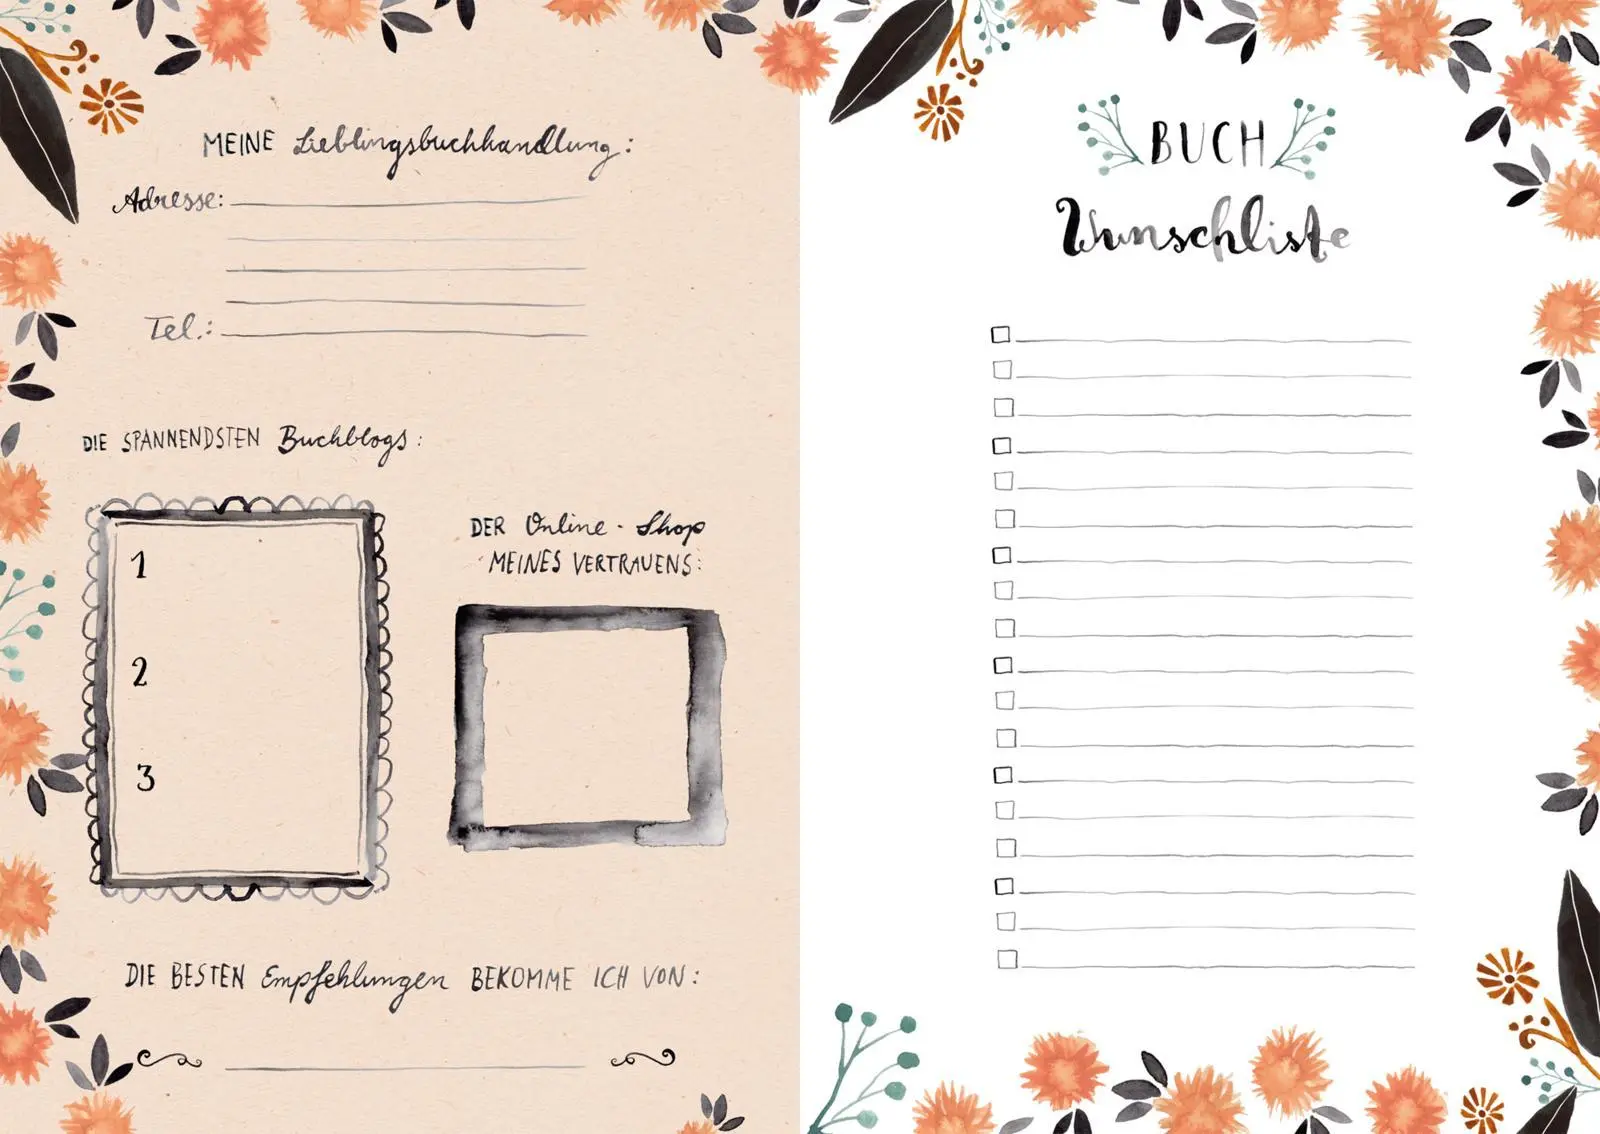 MEINE Lieblingsbuchhandlung:
Adresse:
Tel.:
DIE SPANNENDSTEN Buchblogs:
1
2
3
DER Online-Shop
MEINES VERTRAUENS:
DIE BESTEN Empfehlungen BEKOMME ICH VON:
BUCH
Wunschliste